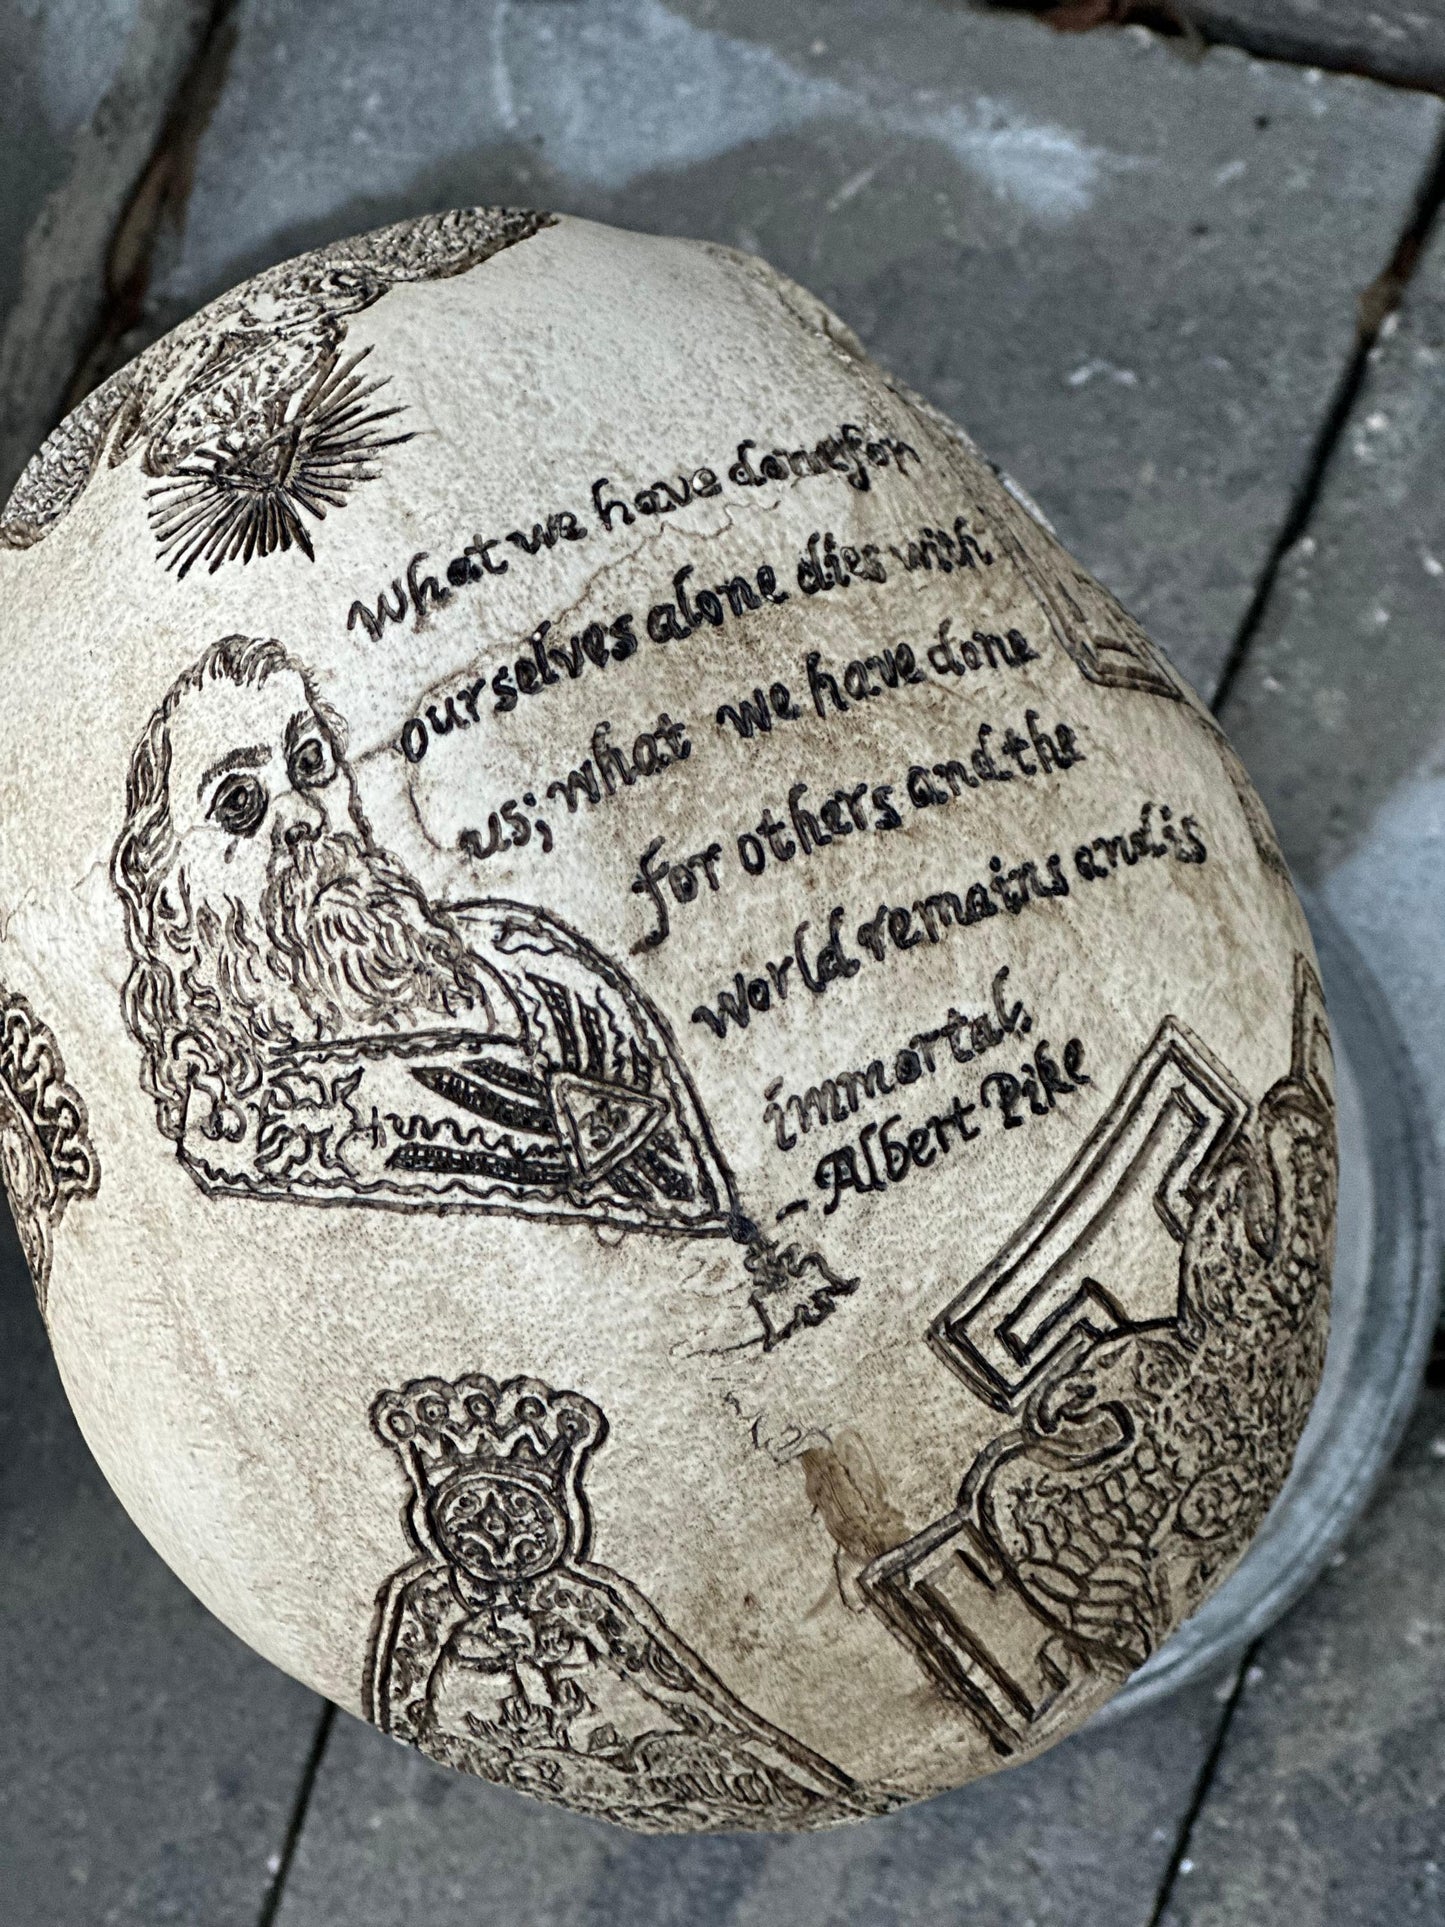 What we have done for
ourselves alone dies with
us; what we have done
for others and the
world remains and is
immortal.
- Albert Pike
33